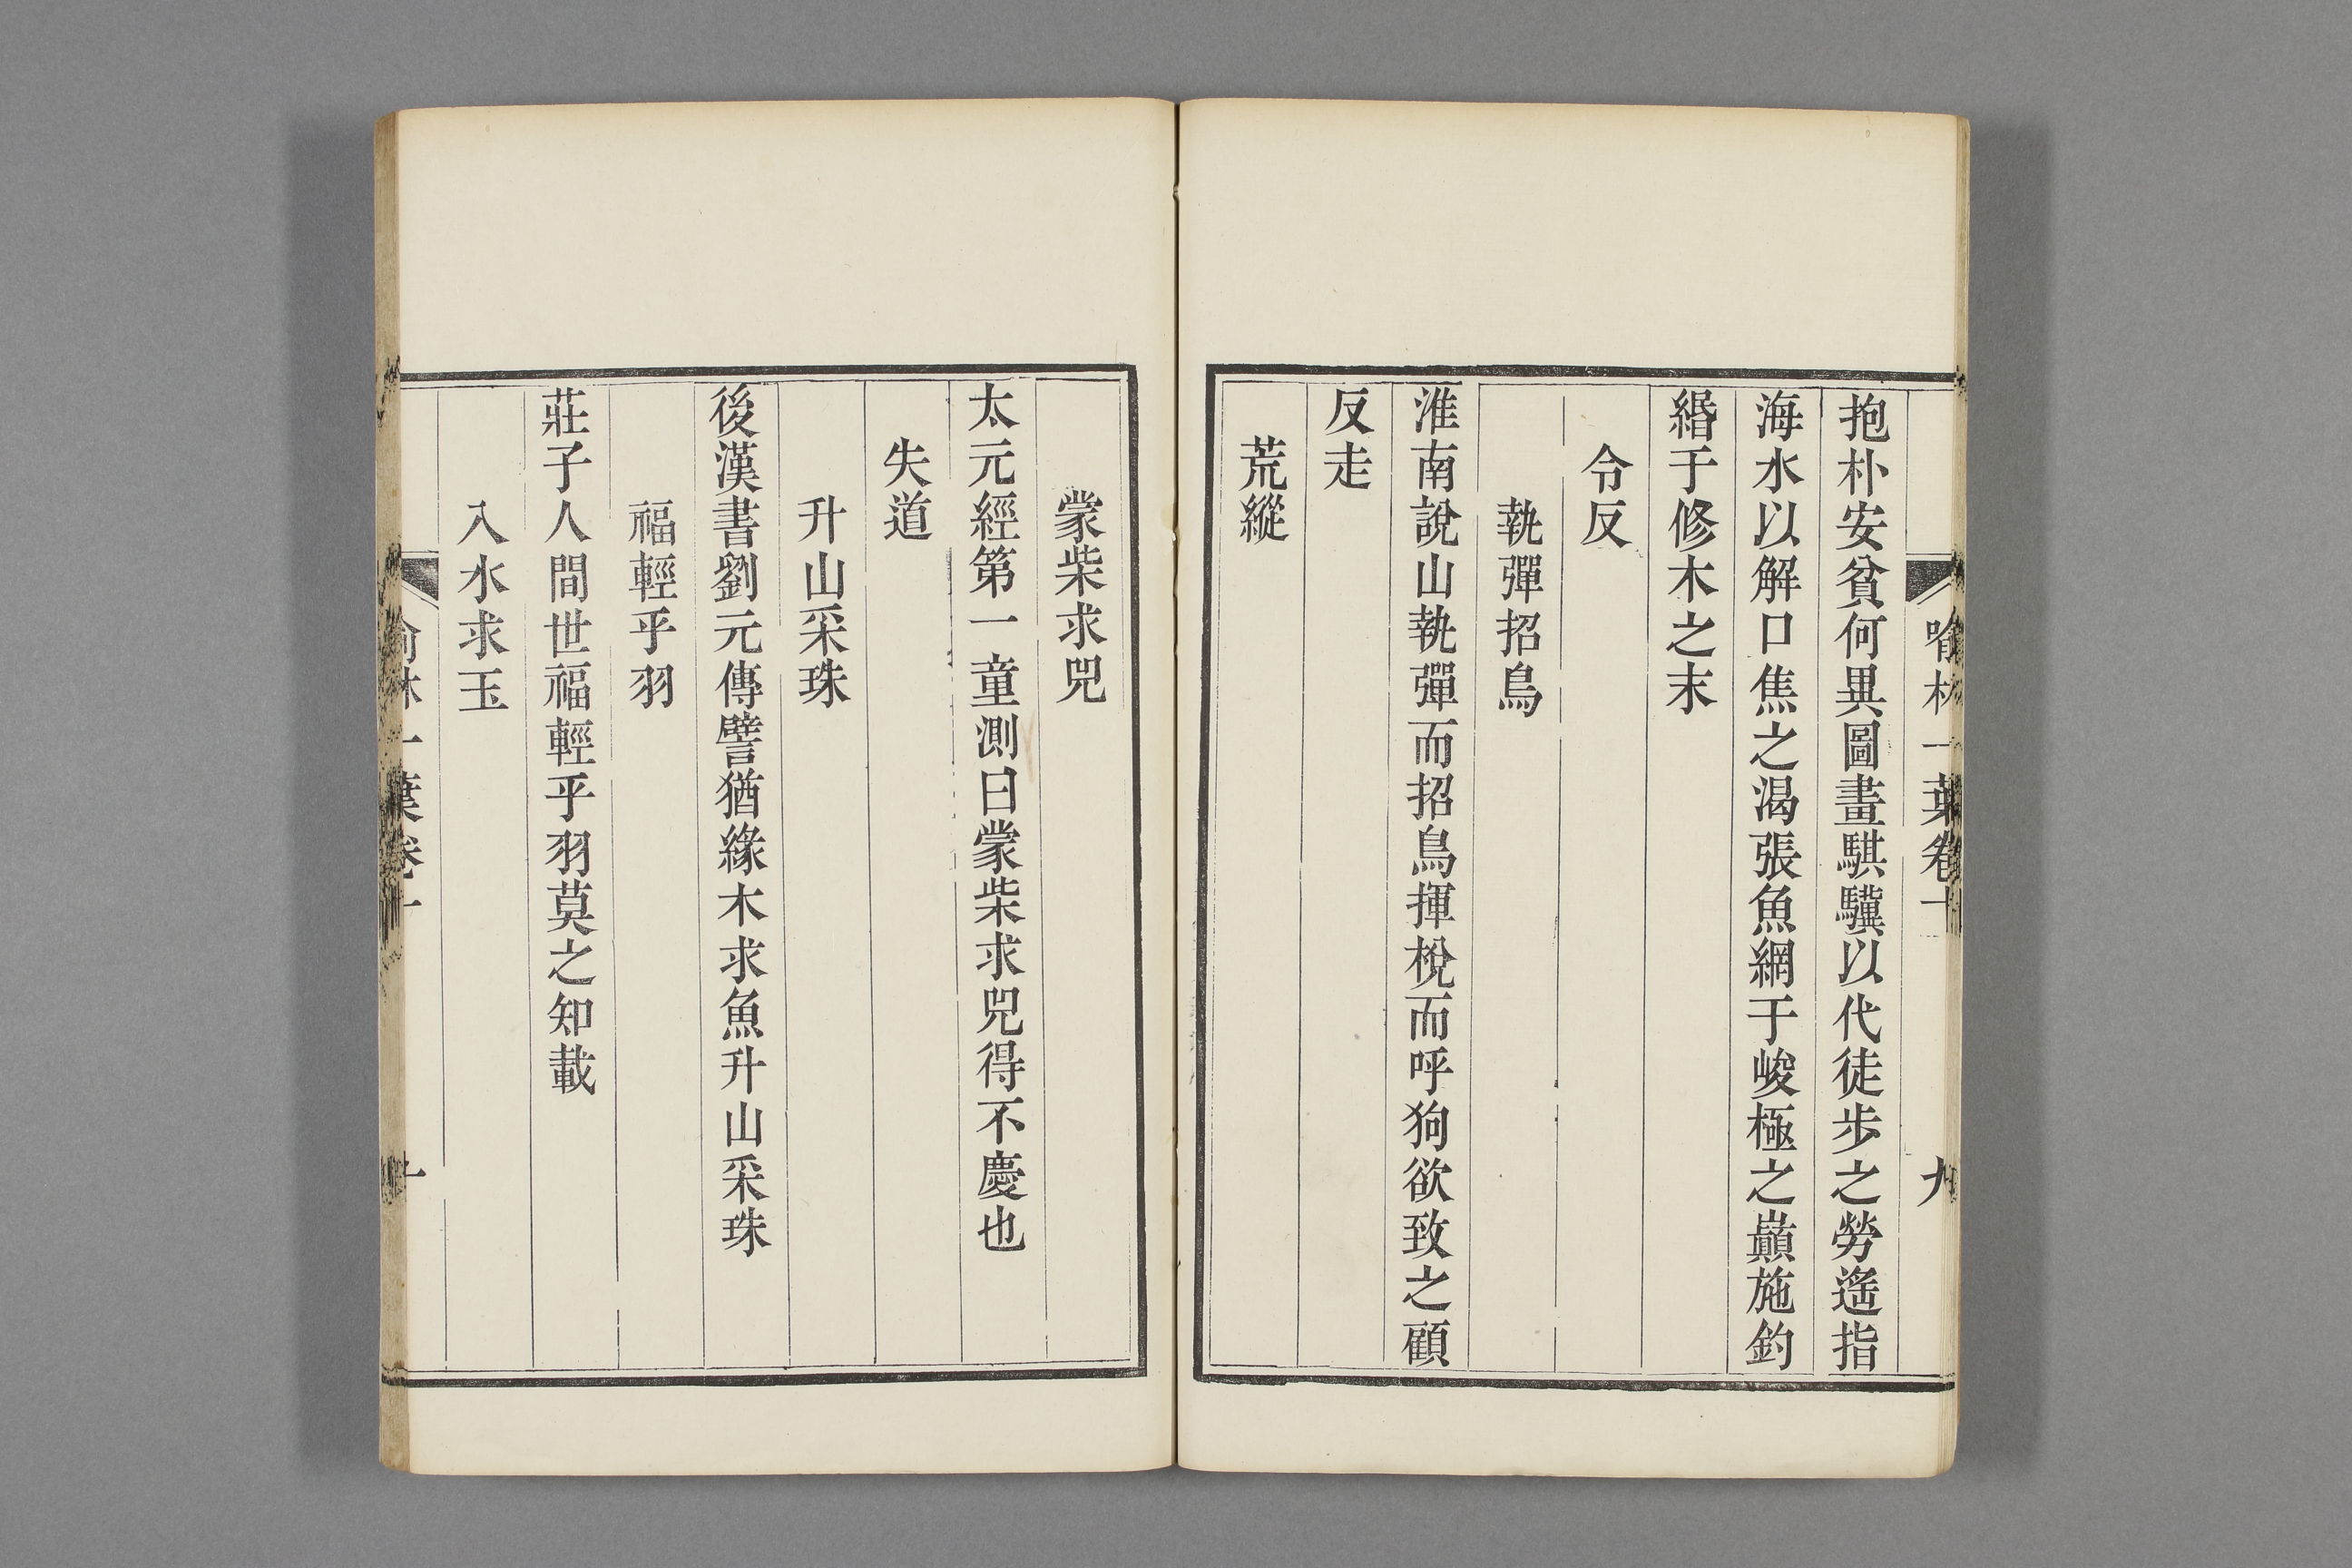 喻林一葉卷十
九
抱朴安貧何異圖畫騏驥以代徒步之勞遙指
海水以解口焦之渴張魚網于峻極之巔施釣
緡于修木之末
令反
執彈招鳥
淮南說山執彈而招鳥揮梲而呼狗欲致之顧
反走
荒縱
蒙柴求兕
太元經第一童測曰蒙柴求兕得不慶也
失道
升山采珠
後漢書劉元傳譬猶緣木求魚升山采珠
福輕乎羽
莊子人間世福輕乎羽莫之知載
入水求玉